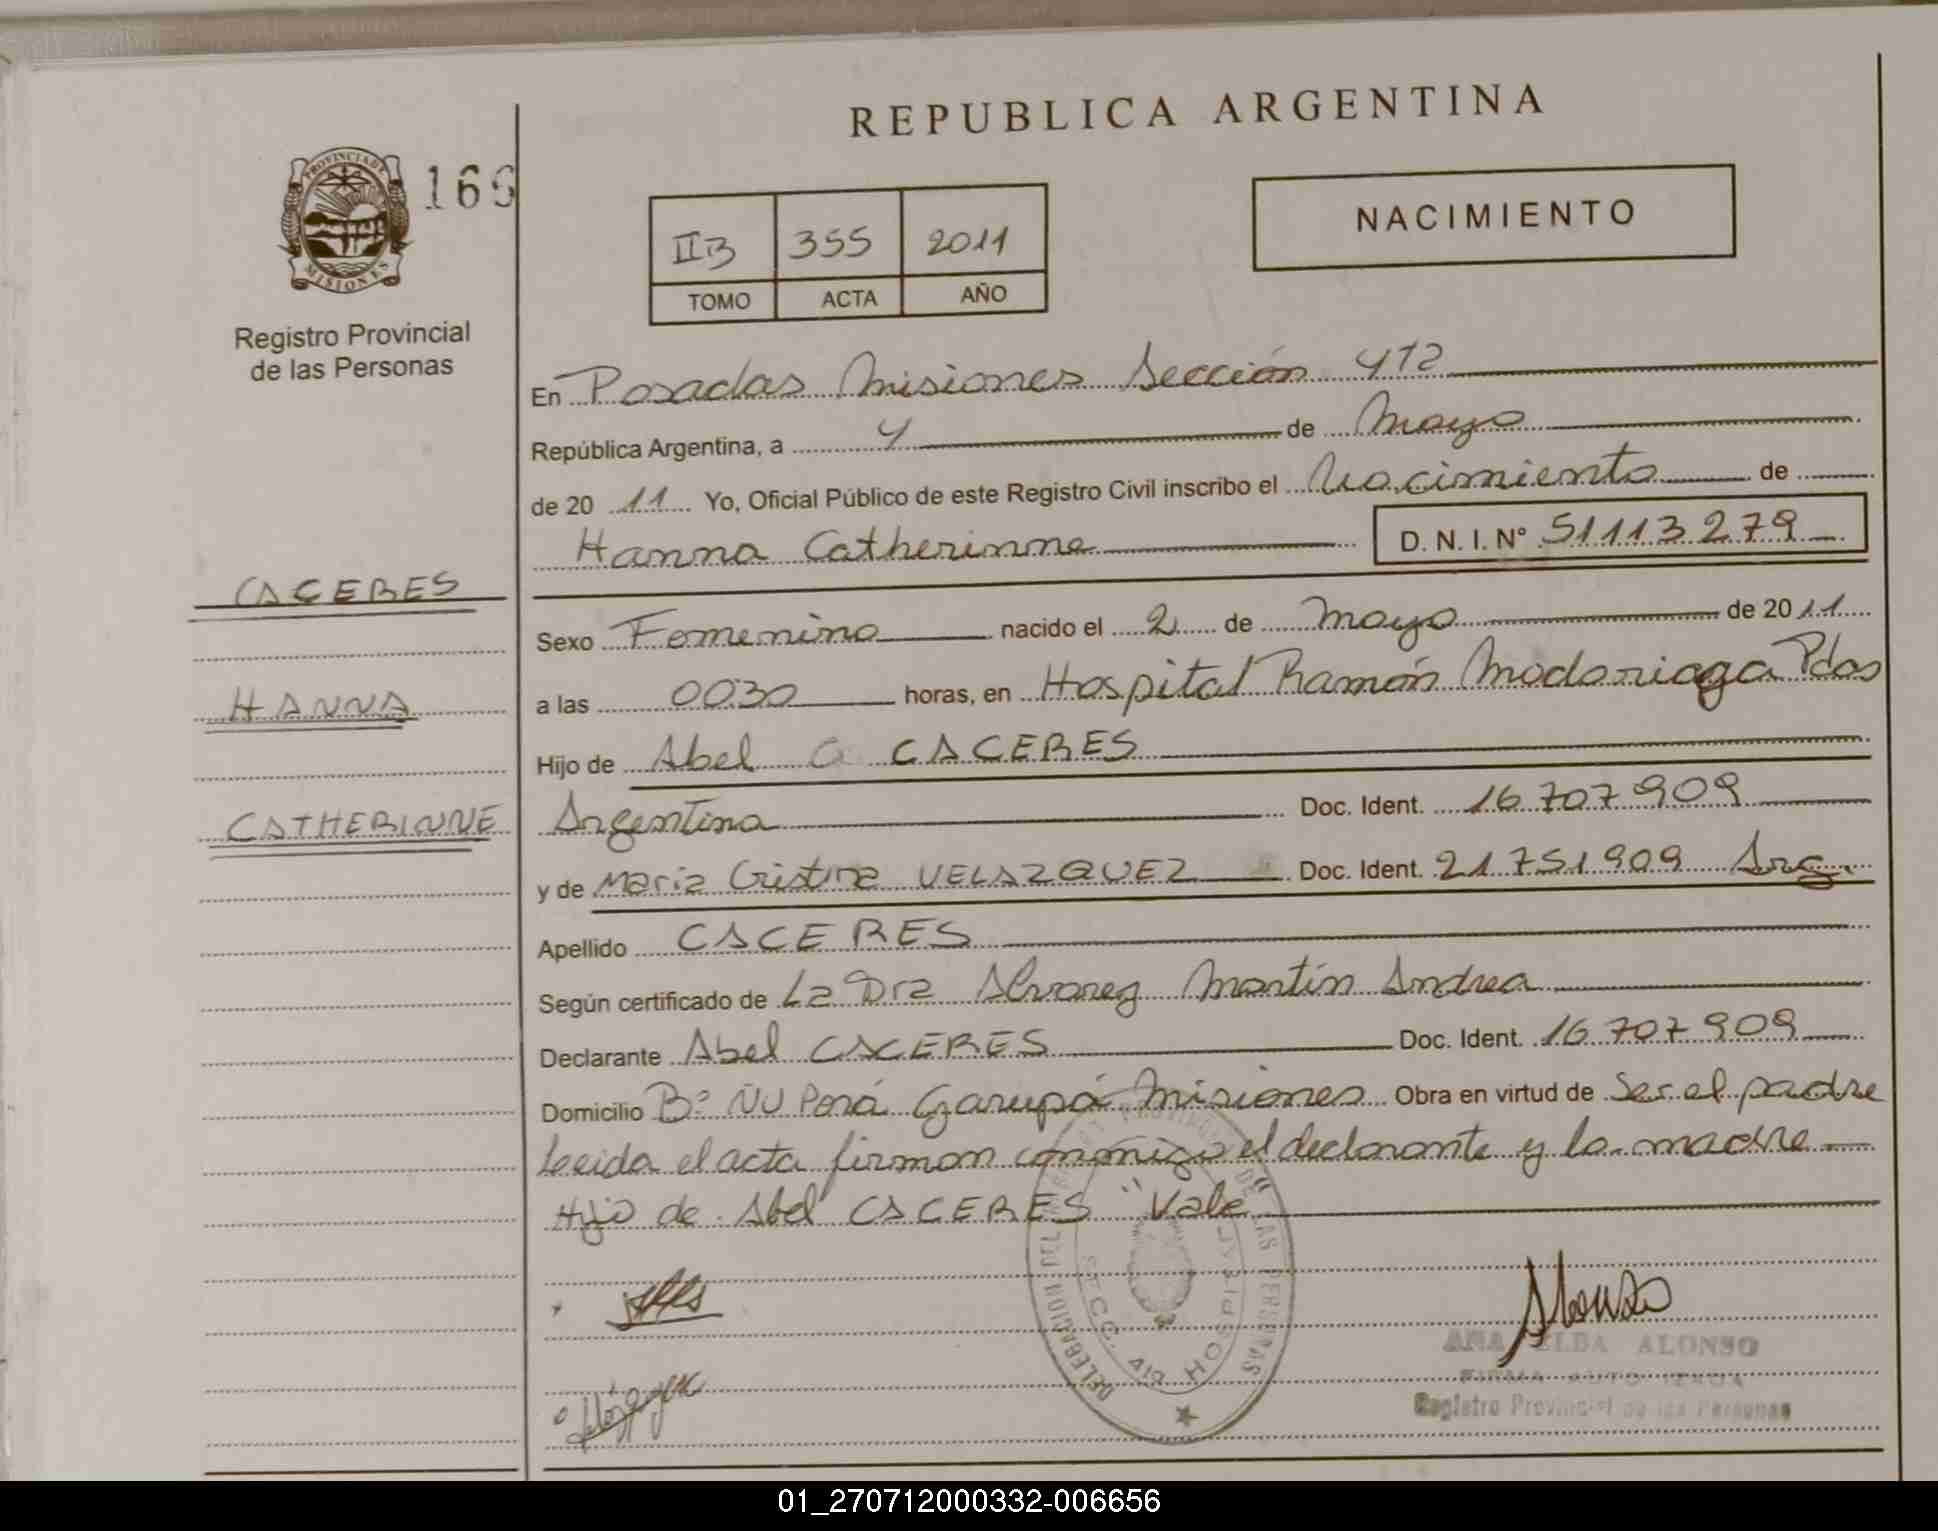 REPUBLICA ARGENTINA
PROVINCIA DE
MISIONES
166
Registro Provincial
de las Personas
IIB 355 2011
TOMO ACTA AÑO
NACIMIENTO
En Posadas Misiones Sección 4ta
República Argentina, a 4 de Mayo
de 20 11 Yo, Oficial Público de este Registro Civil inscribo el Nacimiento de
Hanna Catherinne D. N. I. Nº 51113279
CACERES
Sexo Femenino nacido el 2 de Mayo de 20 11
HANNA
a las 0030 horas, en Hospital Ramón Madariaga Pdas
Hijo de Abel CACERES
CATHERINNE
Argentina Doc. Ident. 16 707 909
y de Maria Cristina VELAZQUEZ Doc. Ident. 21 751 909 Arg.
Apellido CACERES
Según certificado de La Dra Alvarez Martín Andrea
Declarante Abel CACERES Doc. Ident. 16 707 909
Domicilio Bº ÑU Porá Garupá Misiones Obra en virtud de Ser el padre
Leida el acta firman conmigo el declarante y la madre
Hijo de Abel CACERES "Vale"
DELEGACION DEL REGISTRO PROVINCIAL DE LAS PERSONAS
SECC. 4ta HOSPITAL
ANA ELDA ALONSO
FIRMA AUTORIZADA
Registro Provincial de las Personas
01_270712000332-006656